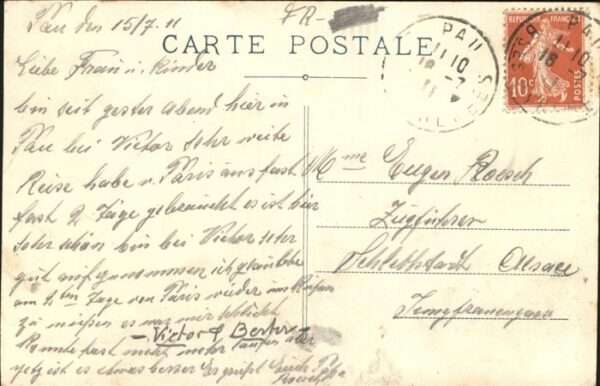 Pau den 15/7. 11
FR-
CARTE POSTALE
Liebe Frau u. Kinder
bin seit gester Abend hier in
Pau bei Victor sehr weite
Reise habe v. Paris aus fast
fast 2 Tage gebraucht es ist hier
sehr schön bin bei Victor sehr
gut aufgenommen ich glaubbe
am 4ten Tage von Paris wieder
zu müssen es war mir
- Victor & Berter -
konnte fast nicht mehr laufen aber
jetz ist es etwas besser Es grüßt Euch Papa
Roesch
Mme Eugen Roesch
Zugführer
Schlettstadt Alsace
PAU
REPUBLIQUE FRANÇAISE
10c
POSTES